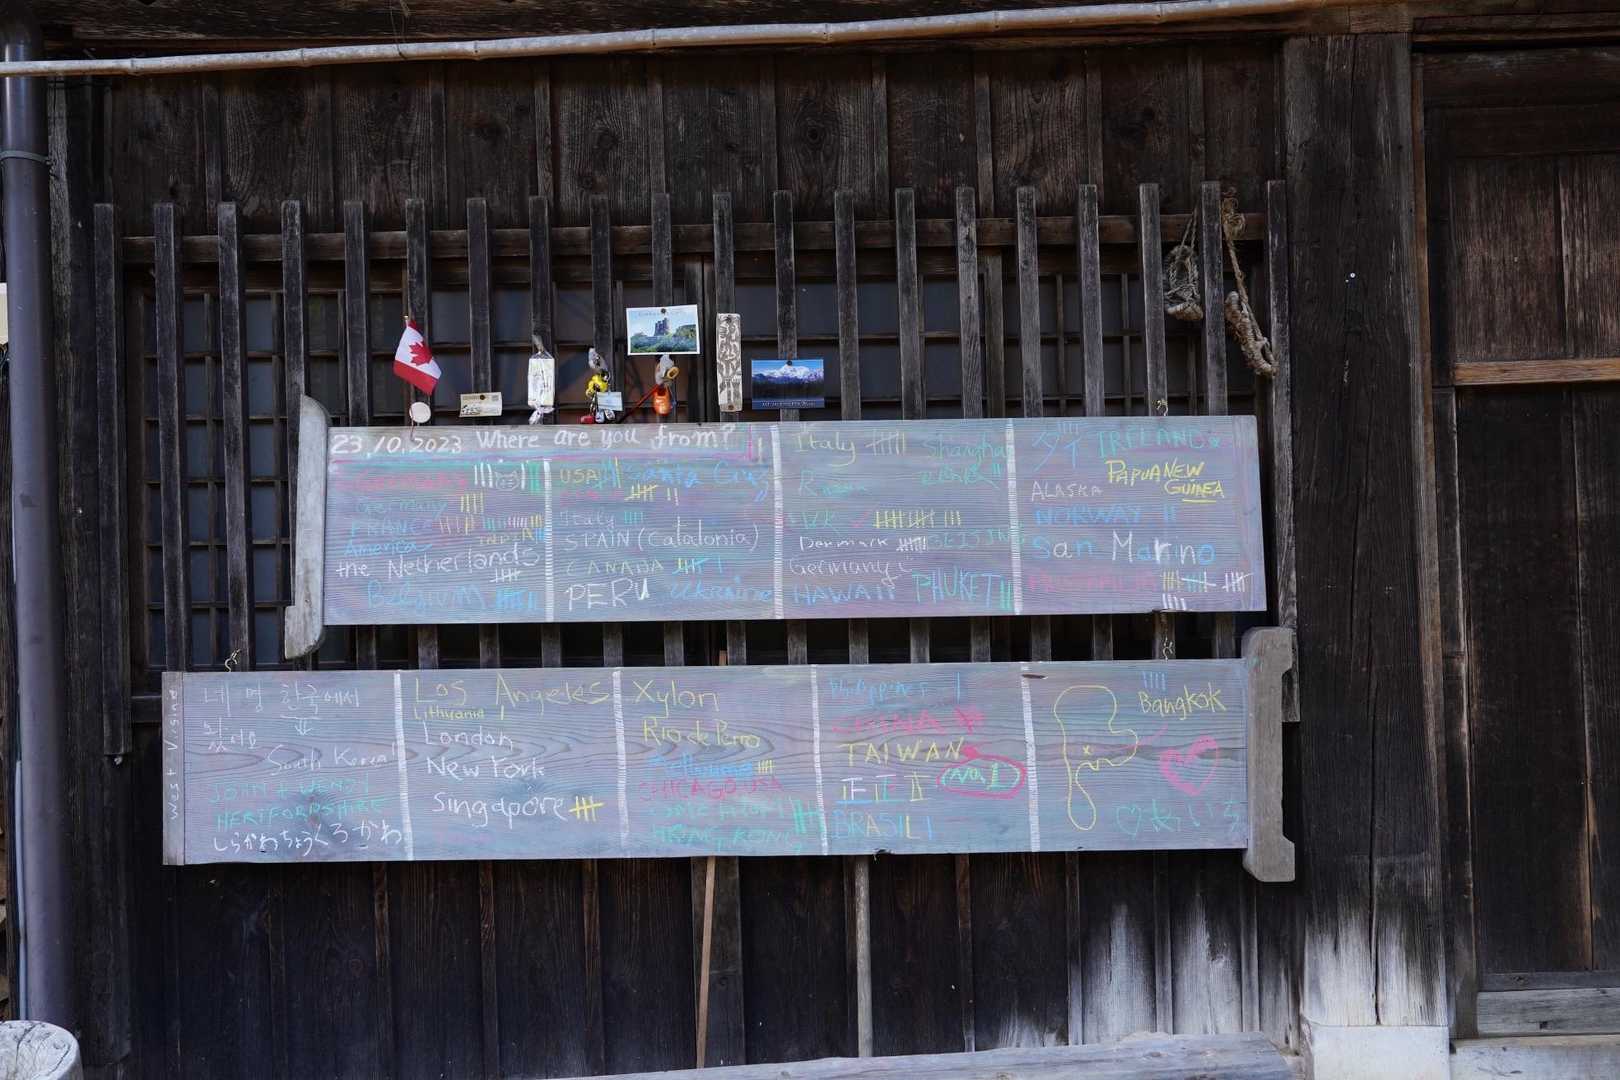 23,10,2023 Where are you from?
Germany
FRANCE
INDIA
America
the Netherlands
Belgium
USA Santa Cruz
Italy
SPAIN (Catalonia)
CANADA
PERU Ukraine
Italy Shanghai
Russia
UK
Denmark BEIJING
Germany
HAWAII PHUKET
タイ IRELAND
PAPUA NEW
GUINEA
ALASKA
NORWAY
San Marino
AUSTRALIA
네 명 한국에서
왔어요
South Korea
JOHN + WENDY
HERTFORDSHIRE
Los Angeles
Lithuania
London
New York
Singapore
Xylon
Melbourne
CHICAGO USA
HONG KONG
Philippines
CHINA
TAIWAN
No.1
正正正
BRASIL
Bangkok